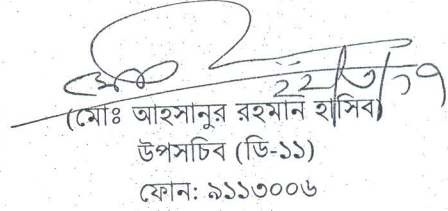 ২২/৩/১৭
(মোঃ আহসানুর রহমান হাসিব)
উপসচিব (ডি-১১)
ফোন: ৯১১৩০০৬